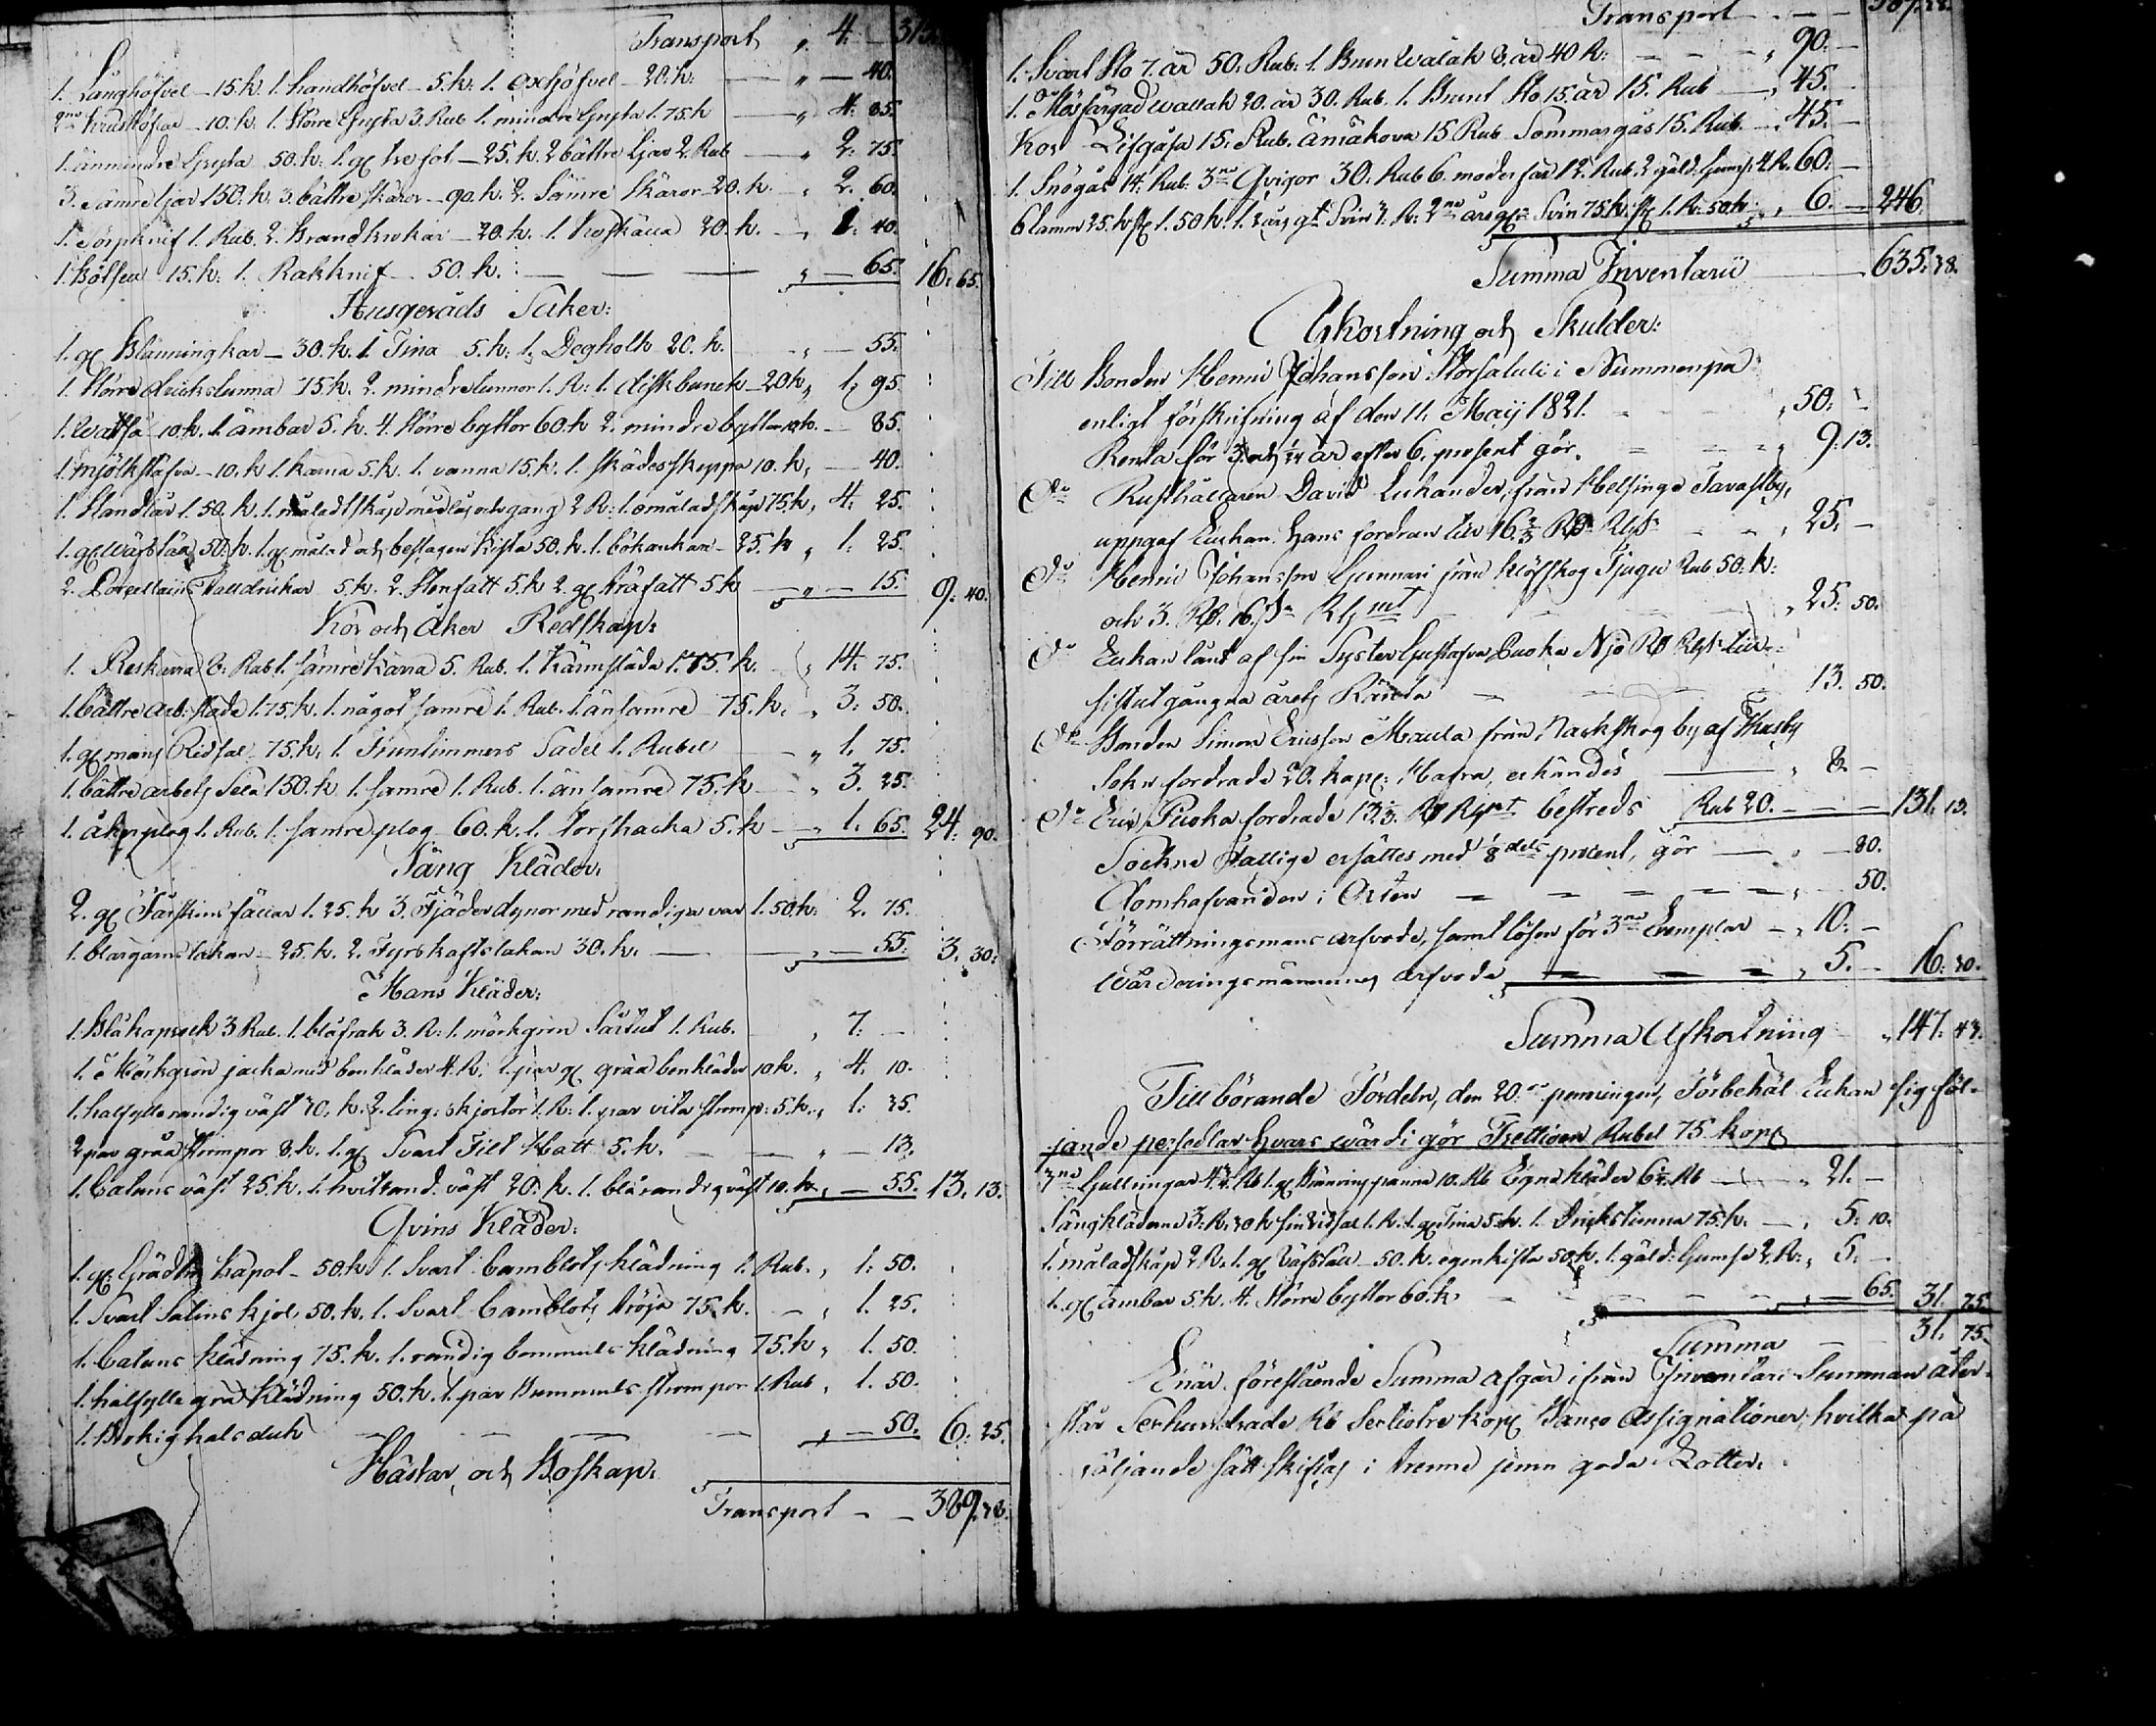 Transport " 4. — 315.
1. Långhöfvel — 15. k. 1. handhöfvel — 5. k. 1. Oxhöfvel — 20. k. — " — 40.
2ne Krushöflar — 10. k. 1. större Gryta 3. Rub. 1. mindre Gryta 1. 75. k — " 4. 85.
1. änmindre Gryta 50. k. 1. gl trefot — 25. k. 2 bättre Ljar 2. Rub — " 2. 75.
3. Sämre Ljar 150. k. 3. bättre skäror — 90. k. 2. Sämre skäror 20. k. — " 2. 60.
1. Törpknif 1. Rub. 2. Brandkrokar — 20. k. 1. Koskälla 20. k. — " 1. 40.
1. 15. k. 1. Rakknif — 50. k. — " — 65. 16. 65.
Husgeråds Saker:
1. gl Blänningkar — 30. k. 1. Tina 5. k. 1. Degholk 20. k. — " — 55.
1. större drickstunna 75. k. 2. mindre tunnor 1. R. 1. diskbunck — 20 k " 1. 95.
1. Wattså 10. k. 1. ämbar 5. k. 4. större byttor 60. k 2. mindre byttor 10 k. — 85.
1. mjölkstäfva — 10. k 1. kärna 5. k. 1. vanna 15. k. 1. skädesskeppa 10. k. — 40.
1. 1. 50. k. 1. måladt skåp med lås och gång 2 R. 1. omåladt skåp 75. k. 4. 25.
1. gl Wäfstâl 50. k. 1. gl målad och beslagen kista 50. k. 1. bökankar — 25. k " 1. 25.
2. Porcellains Talldrickar 5. k. 2. Stenfatt 5. k 2. gl träfatt 5. k — " — 15. 9. 40.
Kör och åker Redskap:
1. Reskärra 8. Rub 1. sämre kärra 5. Rub. 1. Kärnsläda 1. 75. k. — 14. 75.
1. bättre arb. släde 1. 75. k. 1. något sämre 1. Rub. 1. än sämre 75. k. " 3. 50.
1. gl mans Ridsal 75. k. 1. Fruntimmers Sadel 1. Rubel — " 1. 75.
1. bättre arbets Sela 1 50. k 1. sämre 1. Rub. 1. än sämre 75. k. — " 3. 25.
1. åkerplog 1. Rub. 1. sämre plog 60. k. 1. torfhacka 5. k — " 1. 65. 24. 90.
Säng Kläder.
2. gl Fårskins fällar 1. 25. k 3. Fjäder dynor med randiga var 1. 50. k. 2. 75.
1. blårgarnslakan — 25. k. 2. Fyrskaftslakan 30. k. — " — 55. 3. 30.
Mans Kläder:
1. Blå kaprock 3 Rub. 1. blå frak 3. R. 1. mörkgrön Sårtut 1. Rub. " 7. —
1. d:o Mörkgrön jacka med benkläder 4. R. 1. par gl gråa benkläder 10 k. " 4. 10.
1. halfylle randig väst 30. k. 2. ling. skjortor 1. R. 1. par vita strump. 5. k. " 1. 35.
2 par gråa strumpor 8. k. 1. gl Svart Filt Hatt 5. k. — " — 13.
1. Catuns väst 25. k. 1. hvitrand. väst 20. k. 1. blårandig väst 10. k. " — 55. 13. 13.
Qvins Kläder:
1. gl Kapot — 50. k 1. Svart Camblots klädning 1. Rub. " 1. 50.
1. Svart Satins kjol 50. k. 1. Svart Camblots tröja 75. k. — " 1. 25.
1. Catuns klädning 75. k. 1. randig bommuls klädning 75. k " 1. 50.
1. halfylle grå klädning 50. k. 1. par Bummuls strumpor 1. Rub " 1. 50.
1. Brokig halsduk — " — 50. 6. 25.
Hästar och Boskap:
Transport — — 389. 38.
Transport — 389. 38.
1. Svart Sto 7. år 50. Rub. 1. Brun Walak 8. år 40 R. — " 90. —
1. Mösfärgad wallak 20. år 30. Rub. 1. Brunt Sto 15. år 15. Rub — " 45. —
Kor Lisgåsa 15. Rub. 15 Rub Sommargås 15. Rub. — " 45. —
1. Snögås 14. Rub. 3ne Qvigor 30. Rub 6. moder får 12. Rub. 2 gäld. Gums. 4 R. 60. —
6 lamm 25. k st 1. 50 k. 1. gt Svin 3. R. 2ne års gl Svin 75. k. st 1. R. 50 k. " 6. — 246.
Summa Inventarii — 635. 38.
Afkortning och Skulder:
Till Bonden Henric Johansson Storsaluli i Nummenpä
enligt förskrifning af den 11. Maij 1821. — " 50. —
Renta för 3. och år efter 6. prosent gör. — " 9. 13.
D:o Rusthållaren David Lukander från Helsinge Tavastby,
uppgaf Enkan Hans fordran till 16 2/3 RD Rgs — " 25. —
D:o Henric Johansson Gunnari från Klöfskog Tjugu Rub 50. k.
och 3. RD. 16. s Rgmt — " 25. 50.
D:o Enkan lånt af sin Syster Gustafva Puoka Njo RD Rgs till
sistutgångna årets Ränta — 13. 50.
D:o Bonden Simon Ericsson Maula från Narkskog by af Thusby
Sokn fordrade 20. kapp. Hafra, erkändes — " 8. —
D:o Eric Puoka fordrade 13 1/3. RD Rgmt bestreds Rub 20. — — — 131. 13.
Sockne Fattige ersättes med 1/8 dels prosent, gör — " — 80.
Domhafvanden i Orten — " — 50.
Förrättningsmans arfvode, samt lösen för 3ne Exemplar — " 10. —
Wärderingsmännens arfvode — " 5. — 16. 30.
Summa Afkortning " 147. 43.
Tillbörande Fördeln, den 20:de penningen, Förbehåll Enkan sig föl-
jande persedlar hvars wärdi gör Trettioen Rubel 75. kop
3ne Gullringar 4 3/4. Rb 1. gl Bränningspanna 10. Rb Egna Kläder 6 1/4. Rb — " 21. —
Sängkläderna 3. R. 30 k sin Ridsal 1. R. 1. gl Tina 5. k. 1. Drickstunna 75. k. — " 5. 10.
1. måladt skåp 2 R. 1. gl väfstâl — 50. k. egen kista 50. k. 1. gäld. Gumse 2. R. " 5. —
1. gl ämbar 5. k. 4. större byttor 60. k. — " — 65. 31. 75.
Summa — 31. 75.
Enär föreslående Summa afgår ifrån Inventarii Summan åter-
står Serhundrade Rb Sextiotre kop Banco Assignationer, hvilka på
följande sätt skiftas i trenne jemn goda Lotter.